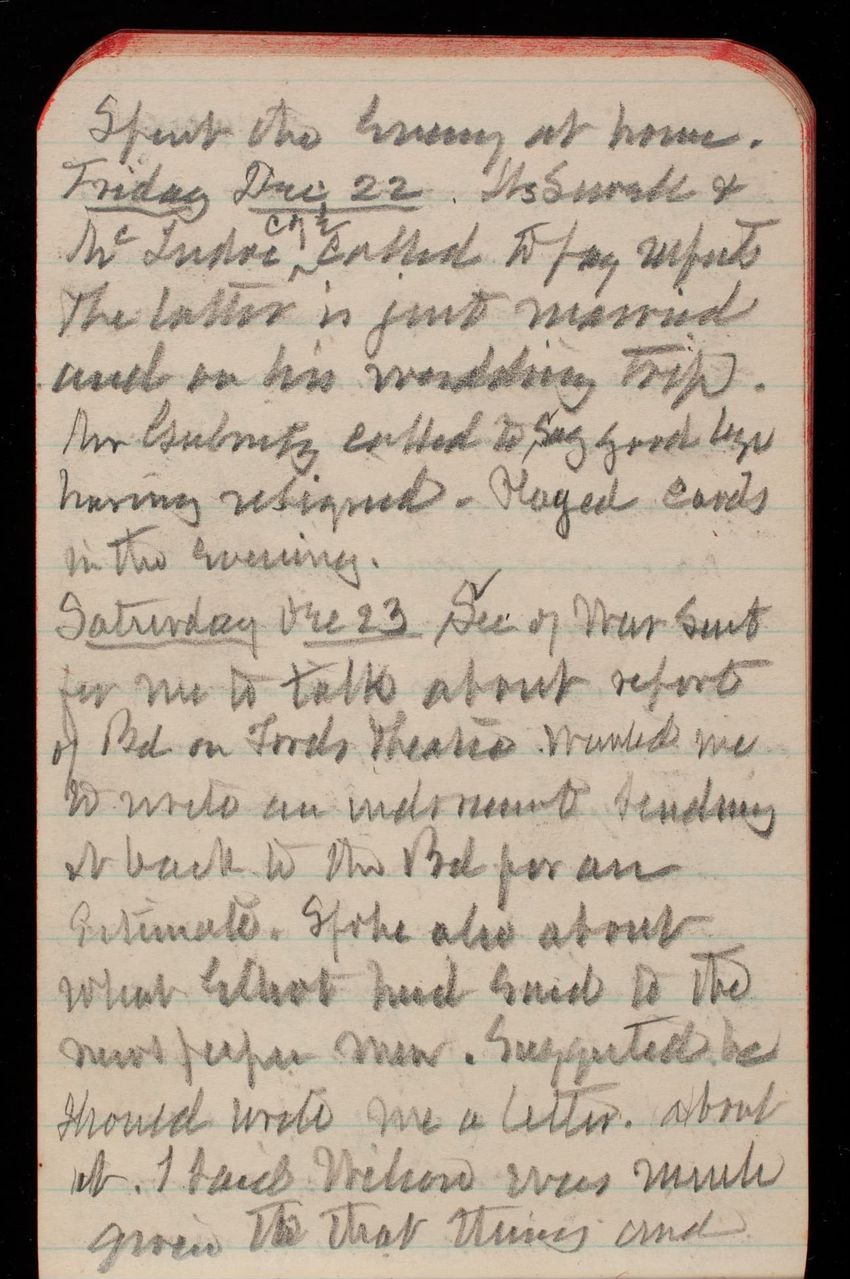 Spent the Evening at home.
Friday Dec 22. & 
Mc Indoe C of E called to pay respects
The latter is just married
and on his wedding trip.
Mr Gubnitz called to say good bye
having resigned. Played cards
in the evening.
Saturday Dec 23 Sec of War sent
for me to talk about report
of Bd on Fords Theatre wanted me
to write an indorsement sending
it back to the Bd for an
Estimate. Spoke also about
what had said to the
newspaper men. Suggested he
should write me a letter. about
it. I said Wilson was much
given to that thing and